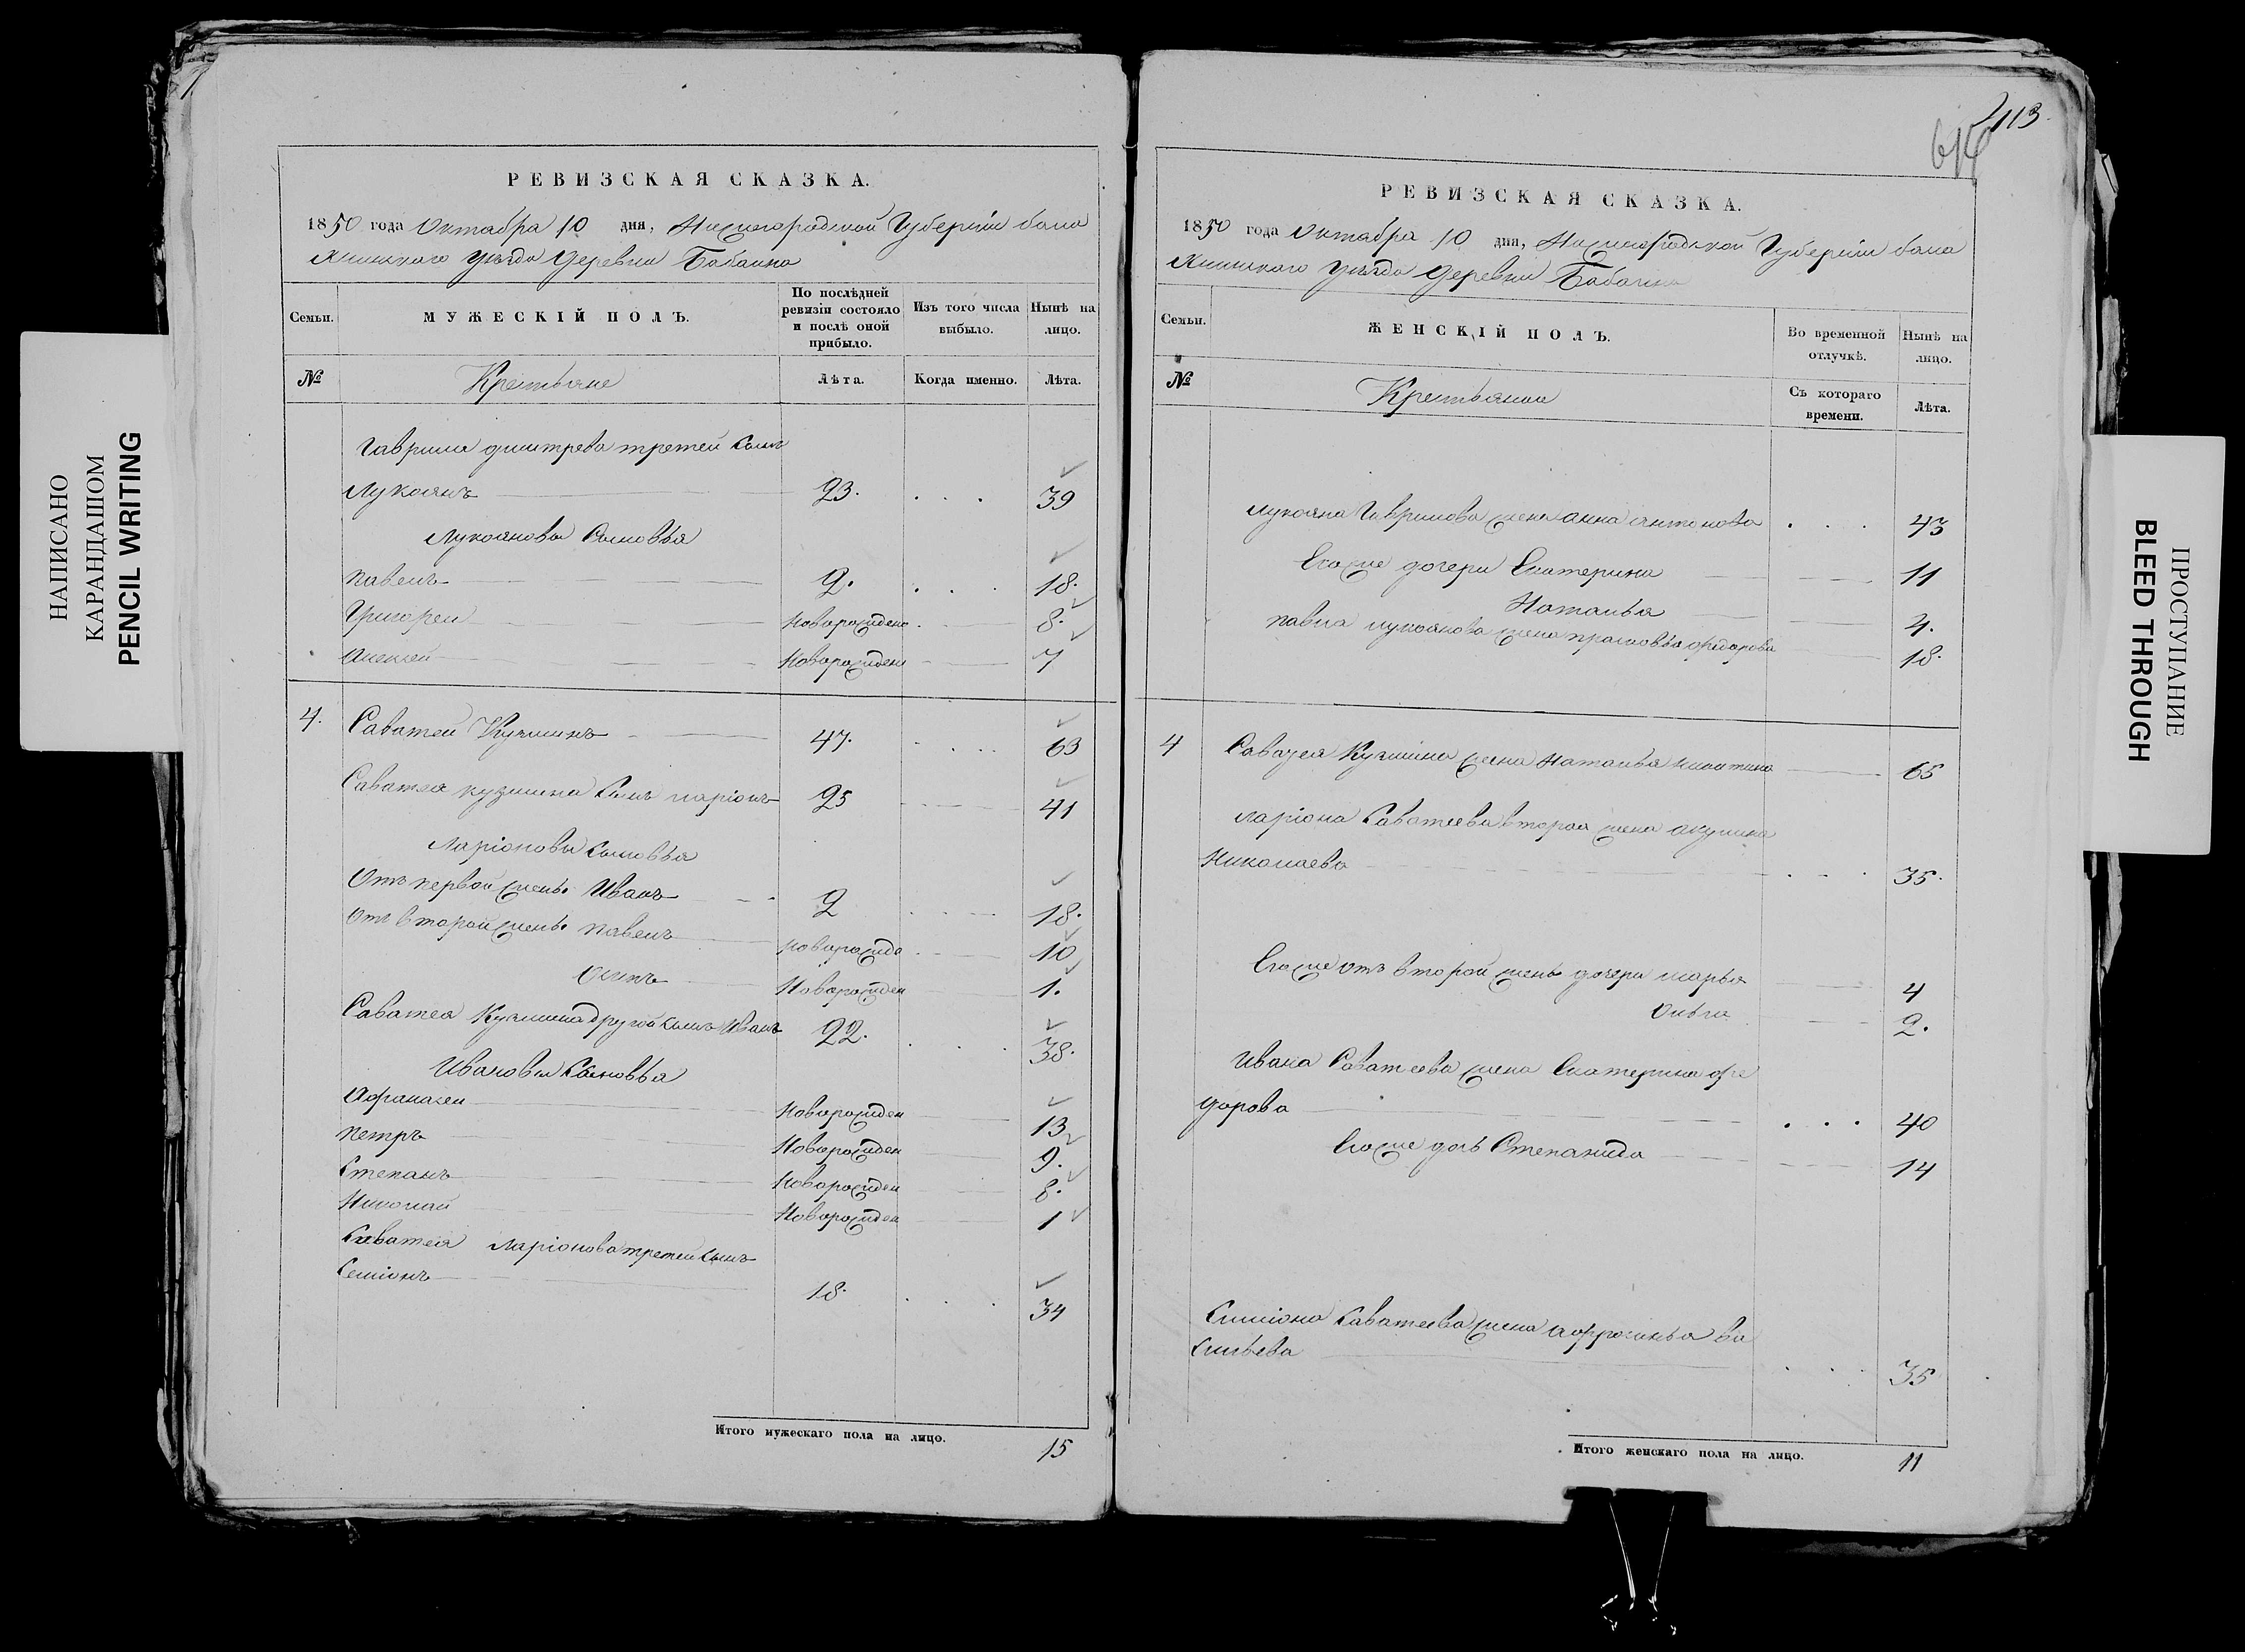 НАПИСАНО
КАРАНДАШОМ
PENCIL WRITING
РЕВИЗСКАЯ СКАЗКА.
1850 года Октабра 10 дня, Нижегородской Губерніи бала
хнинского уѣзда деревни Бабаина
Семьи.
МУЖЕСКІЙ ПОЛЪ.
По послѣдней ревизіи состояло и послѣ оной прибыло.
Изъ того числа выбыло.
Нынѣ на лицо.
№
Крестьяне
Лѣта.
Когда именно.
Лѣта.
Гаврила дмитрева третей сынъ
Лукоянъ 23. 39
Лукояновы сыновья
павелъ 2. 18.
Григорей новорожденъ 8.
Алексей новорожден 7
4. Саватей Кузминъ 47. 63
Саватея кузмина сынъ ларіонъ 25 41
Ларіоновы сыновья
Отъ первой жены Иванъ 2 18.
Отъ второй жены павелъ новорожде 10
Осипъ новорожден 1.
Саватея Кузмина другой сынъ Иванъ 22. 38.
Ивановы сыновья
Афанасей новорожден 13
петръ новорожден 9.
Степанъ новорожден 8.
Николай новорожден 1
Саватея Ларіонова третей сынъ
Семіонъ 18. 34
Итого мужескаго пола на лицо. 15
113.
РЕВИЗСКАЯ СКАЗКА.
1850 года Октабра 10 дня, Нижегородской Губерніи бала
хнинского уѣзда деревни Бабаина
Семьи.
ЖЕНСКІЙ ПОЛЪ.
Во временной отлучкѣ.
Нынѣ на лицо.
№
Крестьянки
Съ котораго времени.
Лѣта.
Лукояна Гаврилова жена анна антонова 43
Его же дочери Екатерина 11
Наталья 4.
павла лукоянова жена прасковья федорова 18.
4 Саватея Кузмина жена наталья никитина 65
Ларіона Саватеева вторая жена акулина
Николаева 35.
Его же отъ второй жены дочери марья 4
Ольга 2.
Ивана Саватеева жена Екатерина фе
дорова 40
Его же дочь Степанида 14
Симіона Саватеева жена афросинья ва
сильева 35
Итого женскаго пола на лицо. 11
ПРОСТУПАНИЕ
BLEED THROUGH